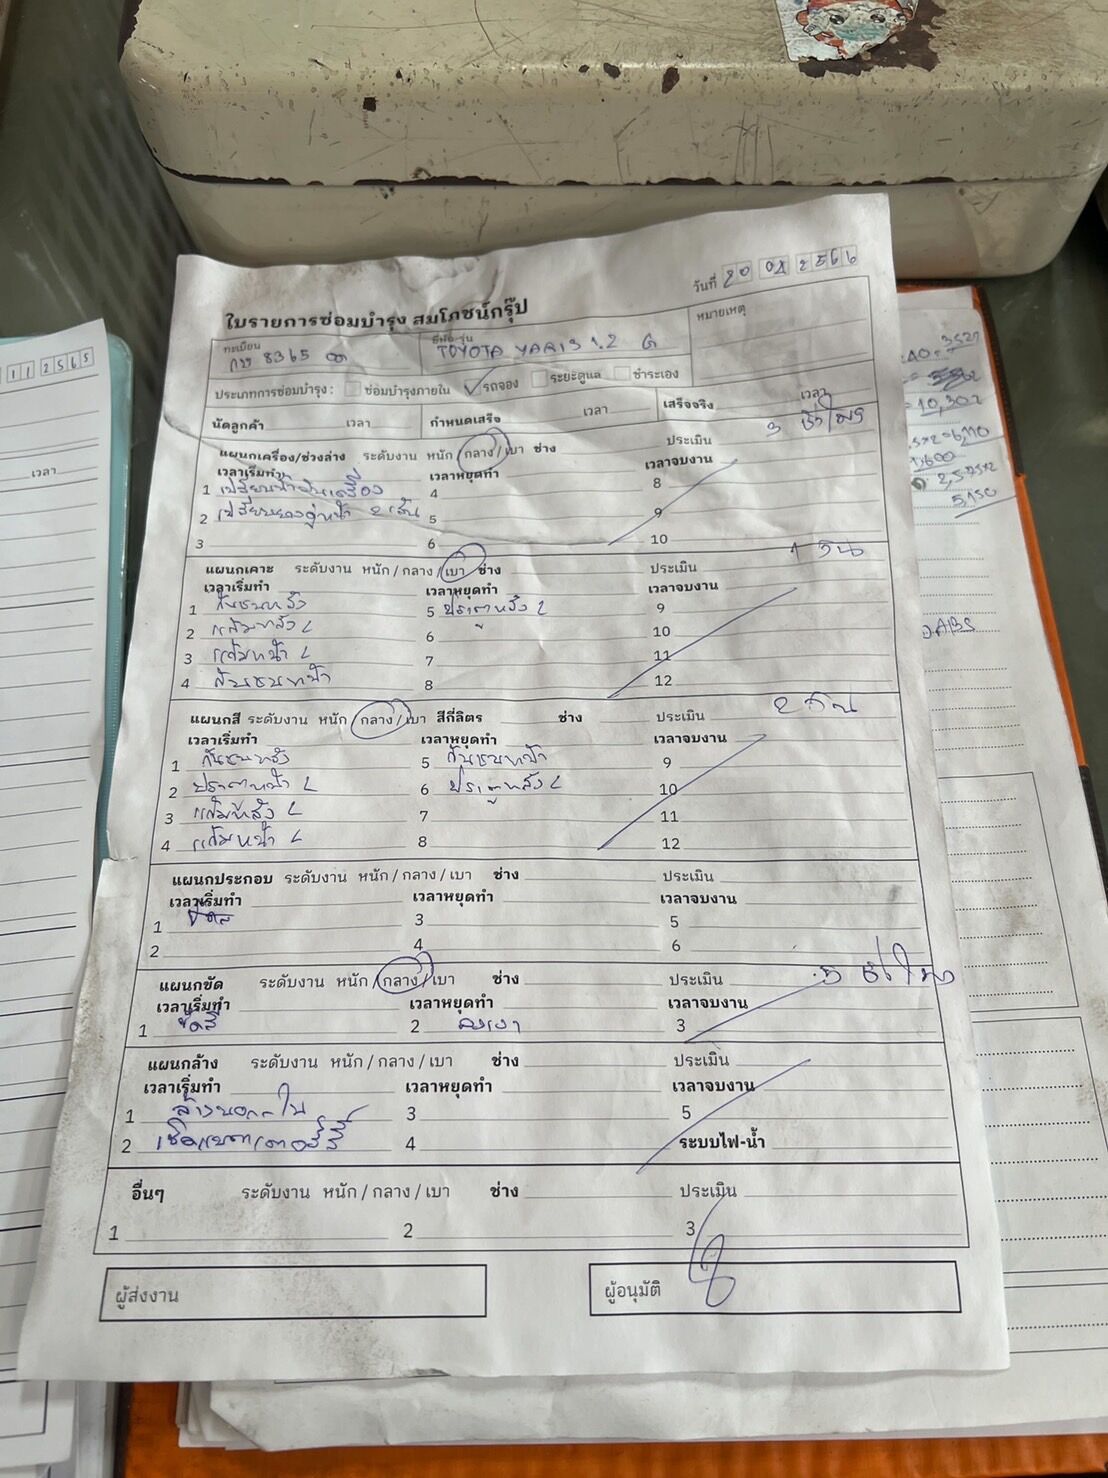 วันที่ 20 04 2566
ใบรายการซ่อมบำรุง สมโภชน์กรุ๊ป
หมายเหตุ
ทะเบียน ยี่ห้อ รุ่น
8365 TOYOTA YARIS 1.2 G
ประเภทการซ่อมบำรุง : ซ่อมบำรุงภายใน ✓ รถจอง ระยะดูแล ชำระเอง
นัดลูกค้า เวลา กำหนดเสร็จ เวลา เสร็จจริง เวลา
แผนกเครื่อง/ช่วงล่าง ระดับงาน หนัก / กลาง / เบา ช่าง ประเมิน 3 ชั่วโมง
เวลาเริ่มทำ เวลาหยุดทำ เวลาจบงาน
1 เปลี่ยนน้ำมันเครื่อง 4 8
2 เปลี่ยนยางคู่หน้า 2 เส้น 5 9
3 6 10
แผนกเคาะ ระดับงาน หนัก / กลาง / เบา ช่าง ประเมิน 1 วัน
เวลาเริ่มทำ เวลาหยุดทำ เวลาจบงาน
1 กันชนหลัง 5 ประตูหลัง L 9
2 แก้มหลัง L 6 10
3 แก้มหน้า L 7 11
4 กันชนหน้า 8 12
แผนกสี ระดับงาน หนัก / กลาง / เบา สีกี่ลิตร ช่าง ประเมิน 2 วัน
เวลาเริ่มทำ เวลาหยุดทำ เวลาจบงาน
1 กันชนหลัง 5 กันชนหน้า 9
2 ประตูหน้า L 6 ประตูหลัง L 10
3 แก้มหลัง L 7 11
4 แก้มหน้า L 8 12
แผนกประกอบ ระดับงาน หนัก / กลาง / เบา ช่าง ประเมิน
เวลาเริ่มทำ เวลาหยุดทำ เวลาจบงาน
1 3 5
2 4 6
แผนกขัด ระดับงาน หนัก / กลาง / เบา ช่าง ประเมิน 5 ชั่วโมง
เวลาเริ่มทำ เวลาหยุดทำ เวลาจบงาน
1 ขัดสี 2 ลงเงา 3
แผนกล้าง ระดับงาน หนัก / กลาง / เบา ช่าง ประเมิน
เวลาเริ่มทำ เวลาหยุดทำ เวลาจบงาน
1 ล้างนอก-ใน 3 5
2 เช็คแบตเตอรี่ 4 ระบบไฟ-น้ำ
อื่นๆ ระดับงาน หนัก / กลาง / เบา ช่าง ประเมิน
1 2 3
ผู้ส่งงาน ผู้อนุมัติ
11 2565
เวลา
3527
= 10,302
5,150
ABS